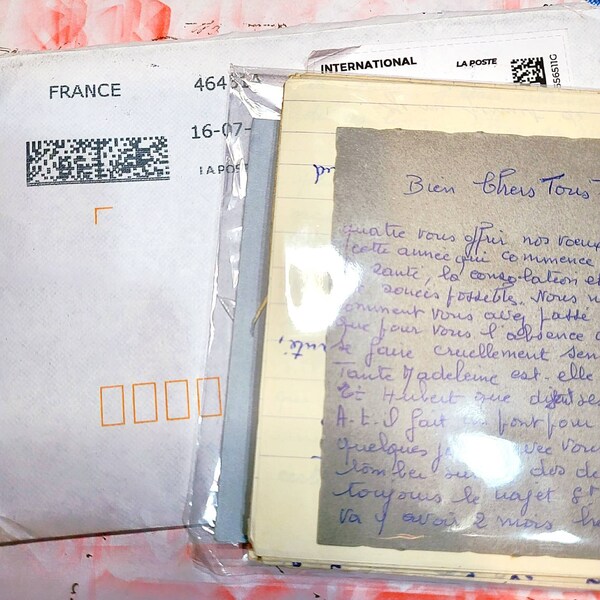 FRANCE
464
16-07-
LA POST
INTERNATIONAL
LA POSTE
56511G
Bien Chers Tous
quatre vous offrir nos voeux
cette année qui commence
santé, la consolation et
soucis possible. Nous
comment vous avez passé
que pour vous l'absence
se faire cruellement sen
Tante Madeleine est-elle
Et Hubert que
A-t-il fait un pont pour
quelques avec vous
tomber sur dos de
toujours le trajet
va y avoir 2 mois